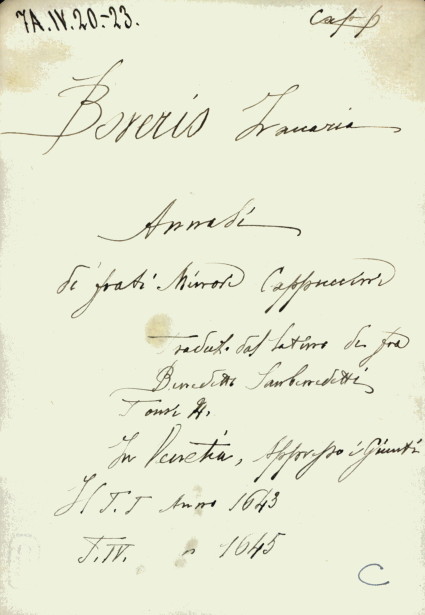 7A.IV.20-23.
Capp
Boverio Zaccaria
Annali
di frati Minori Cappuccini
Tradut. dal latino da fra
Benedetto Sanbenedetti
Tomi 4.
In Venetia, appresso i Giunti
Il T. I Anno 1643
T. IV. " 1645
C